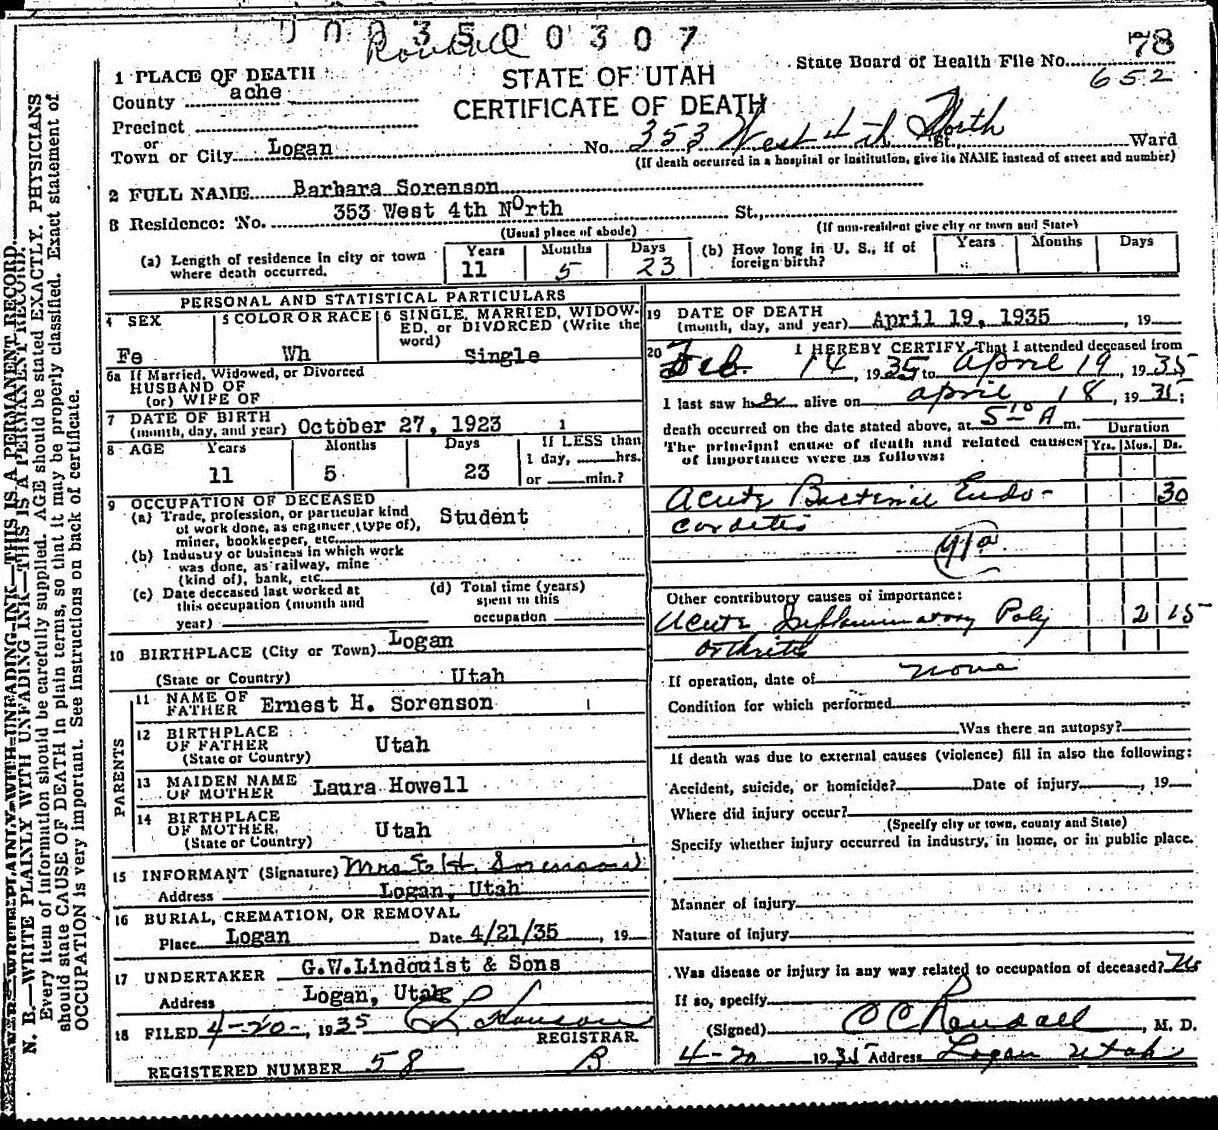 0003500307
Randall
78
STATE OF UTAH
State Board of Health File No. 652
CERTIFICATE OF DEATH
1 PLACE OF DEATH
County ache
Precinct
or
Town or City Logan No. 353 West 4th North St., Ward
(If death occurred in a hospital or institution, give its NAME instead of street and number)
2 FULL NAME Barbara Sorenson
3 Residence: No. 353 West 4th North St.,
(Usual place of abode) (If non-resident give city or town and State)
(a) Length of residence in city or town where death occurred. Years 11 Months 5 Days 23
(b) How long in U. S., if of foreign birth? Years Months Days
PERSONAL AND STATISTICAL PARTICULARS
4 SEX Fe
5 COLOR OR RACE Wh
6 SINGLE, MARRIED, WIDOWED, or DIVORCED (Write the word) Single
6a If Married, Widowed, or Divorced
HUSBAND OF
(or) WIFE OF
7 DATE OF BIRTH
(month, day, and year) October 27, 1923
8 AGE Years 11 Months 5 Days 23 If LESS than 1 day, hrs. or min.?
9 OCCUPATION OF DECEASED
(a) Trade, profession, or particular kind of work done, as engineer, (type of), miner, bookkeeper, etc. Student
(b) Industry or business in which work was done, as railway, mine (kind of), bank, etc.
(c) Date deceased last worked at this occupation (month and year)
(d) Total time (years) spent in this occupation
10 BIRTHPLACE (City or Town) Logan
(State or Country) Utah
PARENTS
11 NAME OF FATHER Ernest H. Sorenson
12 BIRTHPLACE OF FATHER Utah
(State or Country)
13 MAIDEN NAME OF MOTHER Laura Howell
14 BIRTHPLACE OF MOTHER Utah
(State or Country)
15 INFORMANT (Signature) Mrs E H. Sorenson
Address Logan, Utah
16 BURIAL, CREMATION, OR REMOVAL
Place Logan Date 4/21/35, 19
17 UNDERTAKER G.W.Lindquist & Sons
Address Logan, Utah
18 FILED 4-20-, 1935
REGISTRAR.
REGISTERED NUMBER 58 B
19 DATE OF DEATH
(month, day, and year) April 19, 1935, 19
20 I HEREBY CERTIFY, That I attended deceased from
Feb. 14, 1935 to April 19, 1935
I last saw her alive on april 18, 1935;
death occurred on the date stated above, at 5 10 A m.
The principal cause of death and related causes of importance were as follows:
Duration
Yrs. Mos. Ds.
Acute Bacterial Endo- 30
carditis
91a
Other contributory causes of importance:
Acute Inflammatory Poly 2 15
arthritis
If operation, date of none
Condition for which performed
Was there an autopsy?
If death was due to external causes (violence) fill in also the following:
Accident, suicide, or homicide? Date of injury, 19
Where did injury occur?
(Specify city or town, county and State)
Specify whether injury occurred in industry, in home, or in public place.
Manner of injury
Nature of injury
Was disease or injury in any way related to occupation of deceased? No
If so, specify
(Signed) O C Randall, M. D.
4-20 1935 Address Logan Utah
N. B.—WRITE PLANLY WITH UNFADING INK—THIS IS A PERMANENT RECORD.
Every item of information should be carefully supplied. AGE should be stated EXACTLY. PHYSICIANS
should state CAUSE OF DEATH in plain terms, so that it may be properly classified. Exact statement of
OCCUPATION is very important. See instructions on back of certificate.